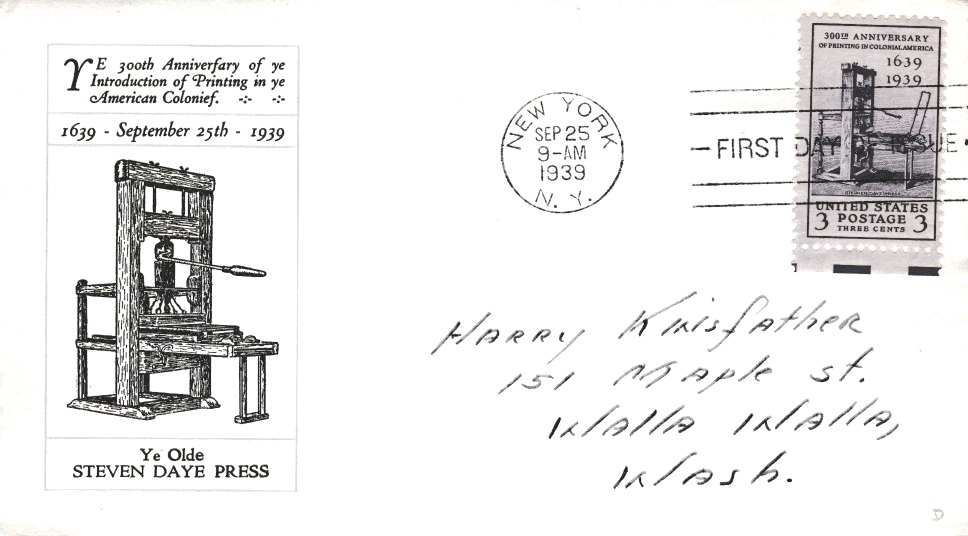 YE 300th Anniverfary of ye
Introduction of Printing in ye
American Colonief. -:- -:-
1639 - September 25th - 1939
Ye Olde
STEVEN DAYE PRESS
NEW YORK
SEP 25
9-AM
1939
N. Y.
FIRST DAY OF ISSUE
300TH ANNIVERSARY
OF PRINTING IN COLONIAL AMERICA
1639
1939
STEPHEN DAYE PRESS
UNITED STATES
3 POSTAGE 3
THREE CENTS
HARRY Kinsfather
151 Maple st.
Walla Walla,
Wash.
D